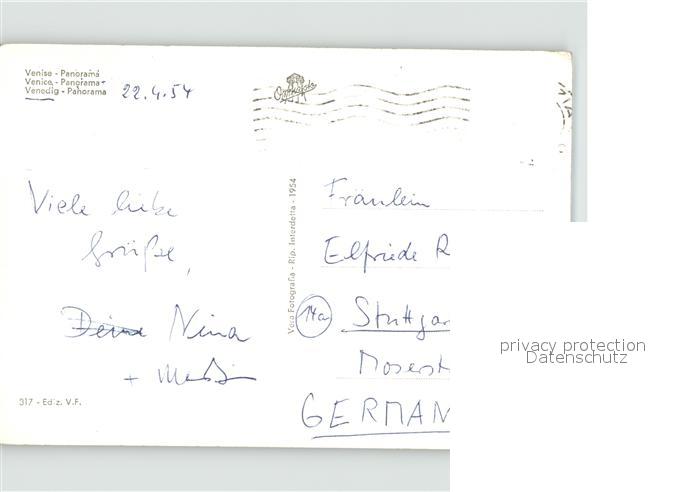 Venise - Panorama
Venice - Panorama
Venedig - Panorama
22.4.54
Viele liebe
Grüße,
Deine Nina
+
317 - Ediz. V.F.
Vera Fotografia - Rip. Interdetta - 1954
Fräulein
Elfriede R
14a Stuttgar
Moserst
GERMAN
privacy protection
Datenschutz